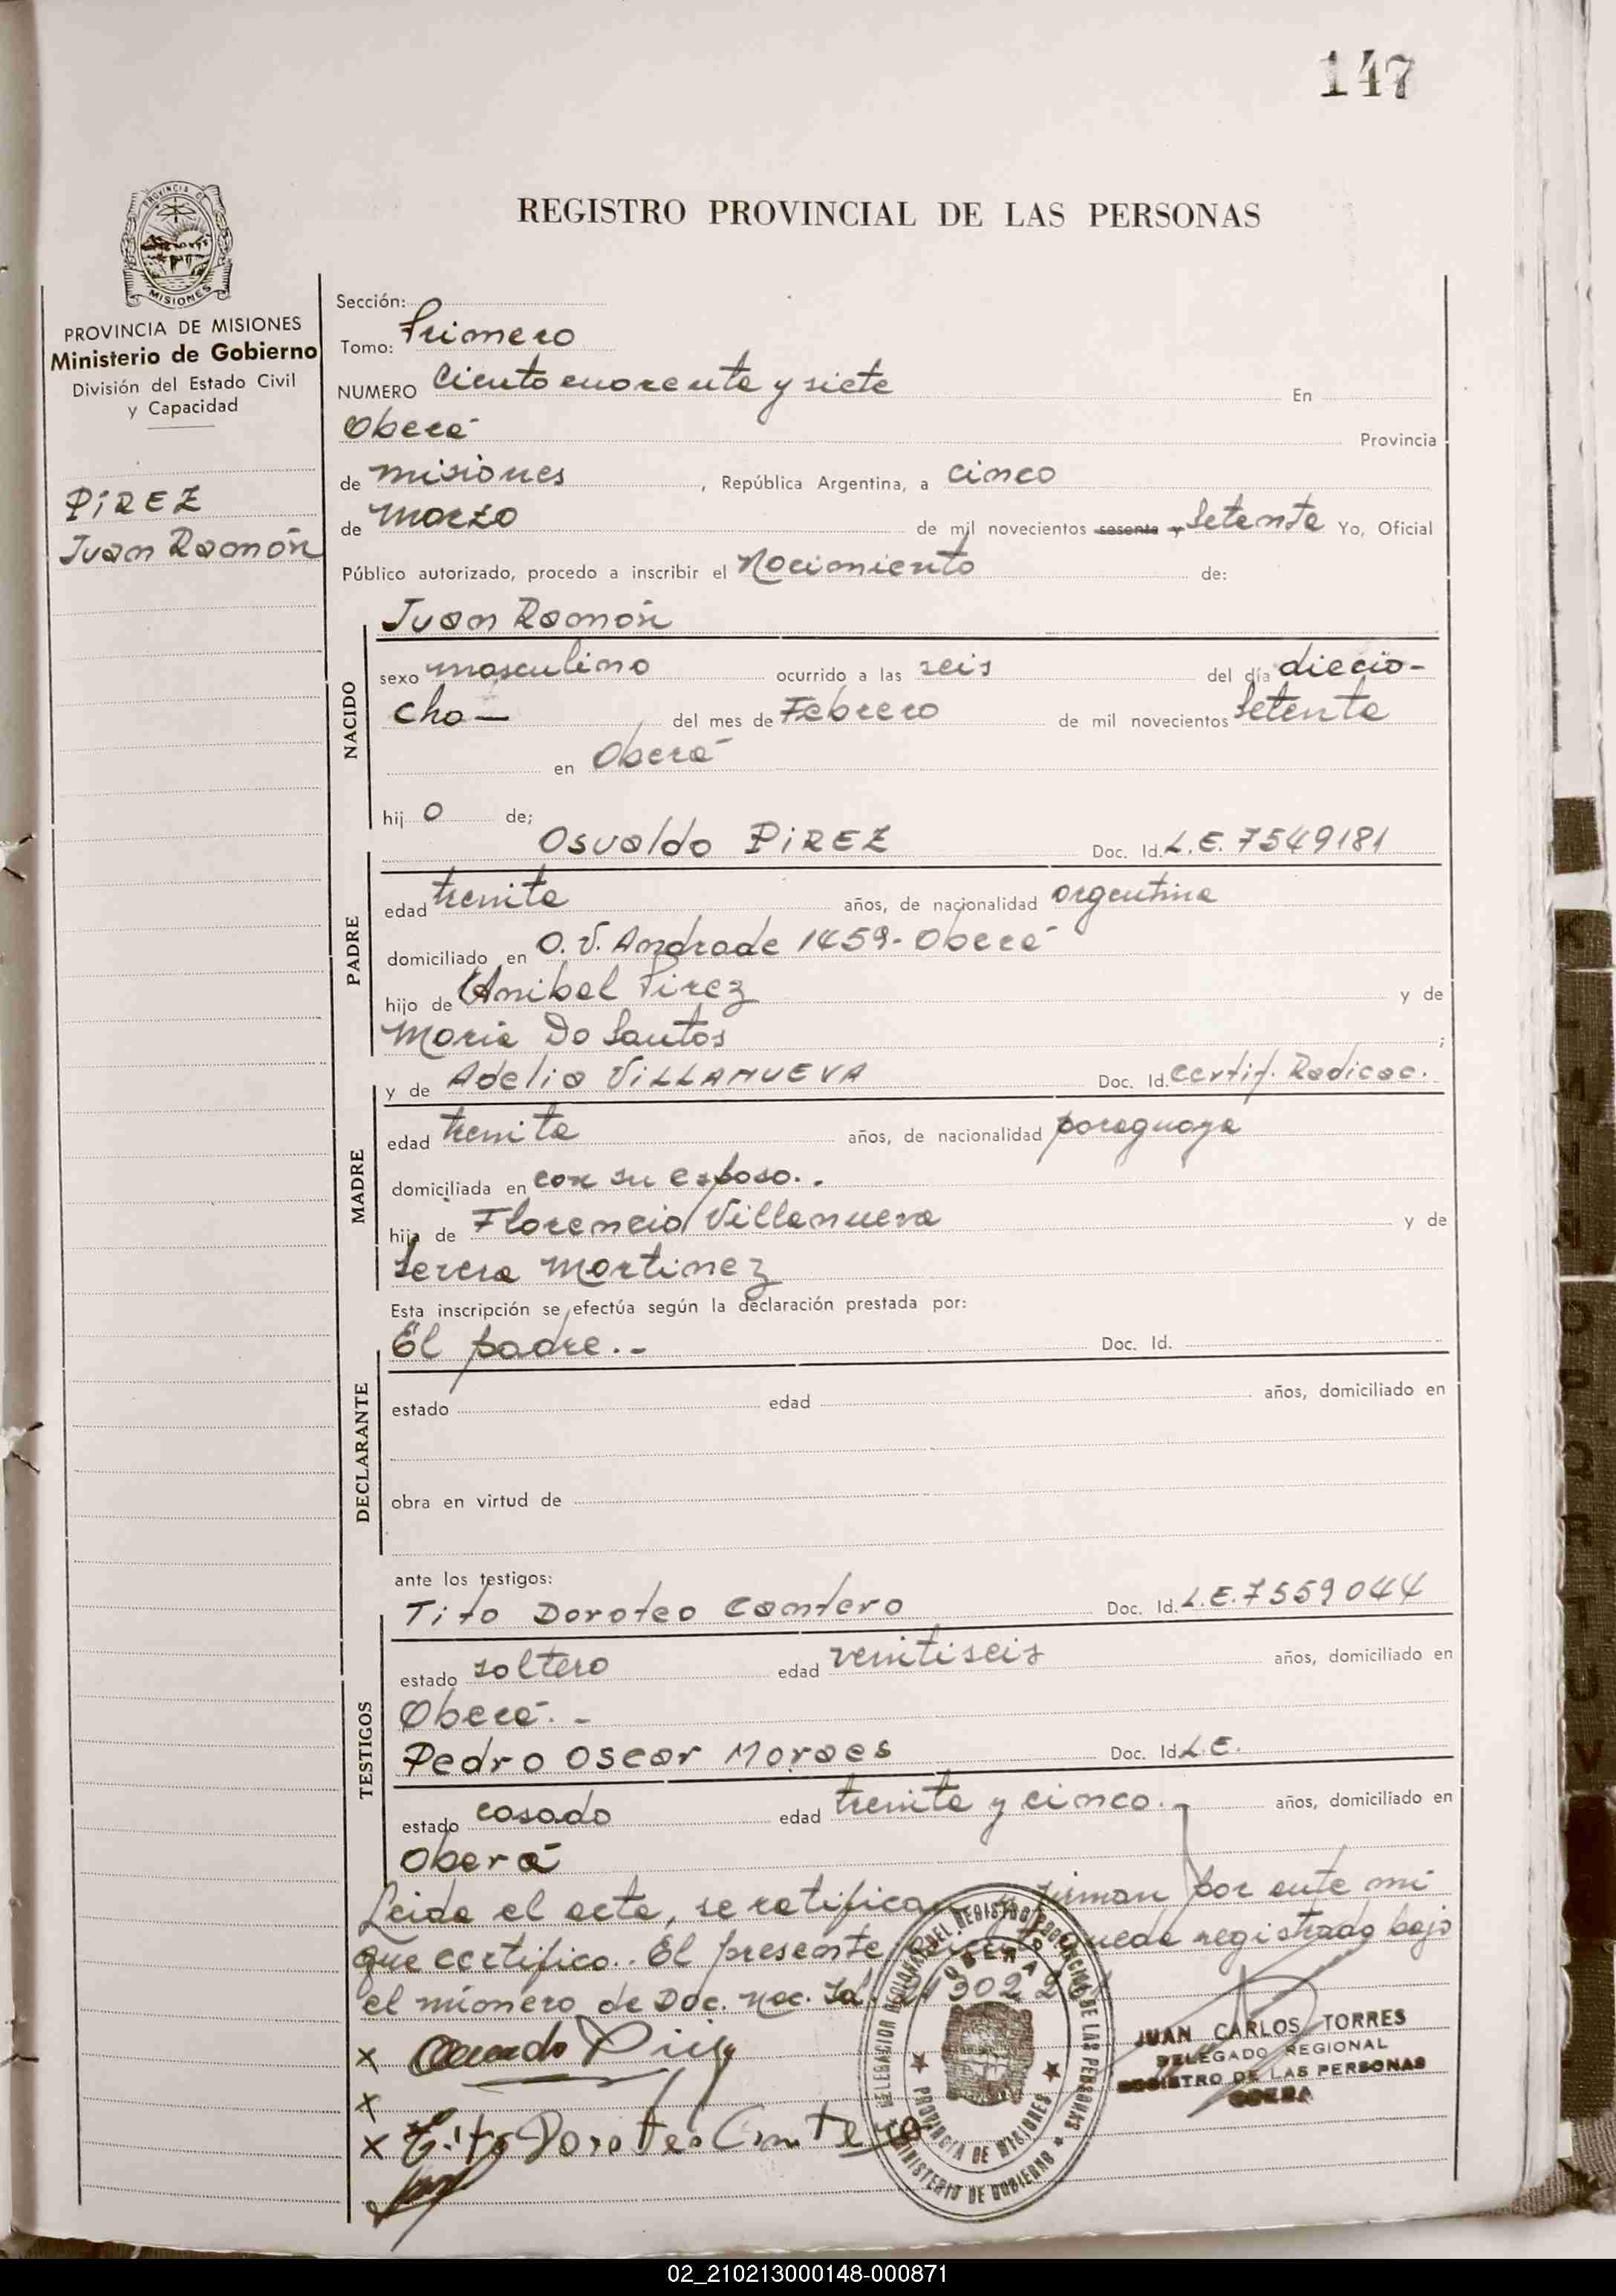 147
REGISTRO PROVINCIAL DE LAS PERSONAS
PROVINCIA DE
MISIONES
PROVINCIA DE MISIONES
Ministerio de Gobierno
División del Estado Civil
y Capacidad
PIREZ
Juan Ramón
Sección:
Tomo: Primero
NUMERO Ciento cuarenta y siete En
Oberá Provincia
de misiones, República Argentina, a cinco
de marzo de mil novecientos sesenta y Setenta Yo, Oficial
Público autorizado, procedo a inscribir el Nacimiento de:
Juan Ramón
NACIDO
sexo masculino ocurrido a las seis del día diecio-
cho— del mes de Febrero de mil novecientos Setenta
en Oberá
hij o de;
Osvaldo PIREZ Doc. Id. L.E. 7549181
PADRE
edad treinta años, de nacionalidad argentina
domiciliado en O.V. Andrade 1459-Oberá
hijo de Anibal Pirez y de
Maria Do Santos ;
y de Adelia VILLANUEVA Doc. Id. Certif. Radicac.
MADRE
edad treinta años, de nacionalidad paraguaya
domiciliada en con su esposo..
hija de Florencio Villanueva y de
Martinez
Esta inscripción se efectúa según la declaración prestada por:
El padre.- Doc. Id.
DECLARANTE
estado edad años, domiciliado en
obra en virtud de
ante los testigos:
Tito Doroteo Cantero Doc. Id. L.E. 7559044
TESTIGOS
estado soltero edad veintiseis años, domiciliado en
Oberá.-
Pedro Oscar Moraes Doc. Id. L.E.
estado casado edad treinta y cinco.- años, domiciliado en
Oberá
Leida el acta, se ratifican y firman por ante mi
que certifico.. El presente queda registrado bajo
el número de Doc. Nac. Id.
JUAN CARLOS TORRES
DELEGADO REGIONAL
REGISTRO DE LAS PERSONAS
OBERA
x
x
x Tito Doroteo Cantero
DELEGACION REGIONAL DEL REGISTRO PROVINCIAL DE LAS PERSONAS
OBERA
PROVINCIA DE MISIONES
MINISTERIO DE GOBIERNO
02_210213000148-000871